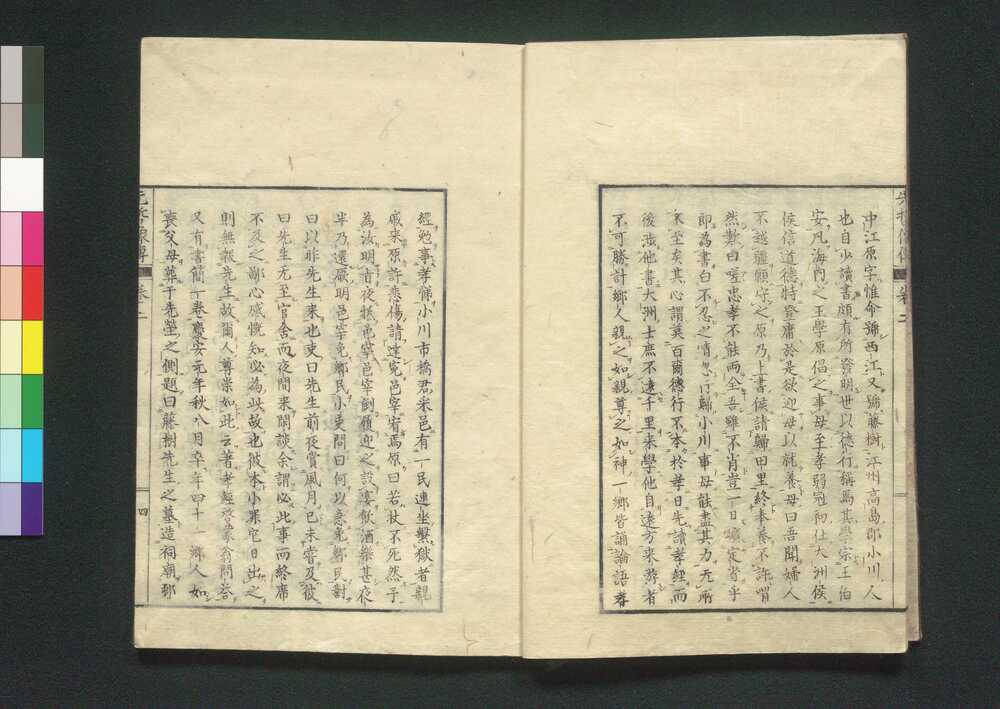 中江原字惟命號西江又號藤樹江州高島郡小川人
也自少讀書頗有所發明世以德行稱焉其學宗王伯
安凡海内之王學原倡之事母至孝弱冠初仕大洲侯
侯信道德特登庸於是欲迎母以就養母曰吾聞婦人
不越疆願守之原乃上書侯請歸田里終奉養不許喟
然歎曰嗟忠孝不能兩全吾雖不肖豈一日曠定省乎
即為書曰不忍之情歸小川事母能盡其力无所
不至矣其心謂莫百爾德行不本於孝日先讀孝經而
後涉他書大洲士庶不遠千里來學他自遠方來游者
不可勝計鄉人親之如親尊之如神一鄉皆誦論語孝
經勉事孝悌小川市橋君采邑有一民連坐繫獄者親
戚來原許悲傷請達寃邑宰宥焉原曰若杖不死然予
為汝明宵夜抵邑宰邑宰倒履迎之設宴飲酒樂甚夜
半乃還厥明邑宰免鄉民小吏問曰何以急免鄉民對
曰以非先生來也吏曰先生前夜賞風月已未嘗及彼
曰先生无至官舍而夜間來閒談余謂必此事而終席
不及之鄙心慼慨知必為此故也彼本小罪宅日出之
則無報先生故爾人尊崇如此云著孝經啟蒙翁問荅
又有書簡一卷慶安元年秋八月卒年四十一鄉人如
喪父母葬于先塋之側題曰藤樹先生之墓造祠廟鄉
卷二
四